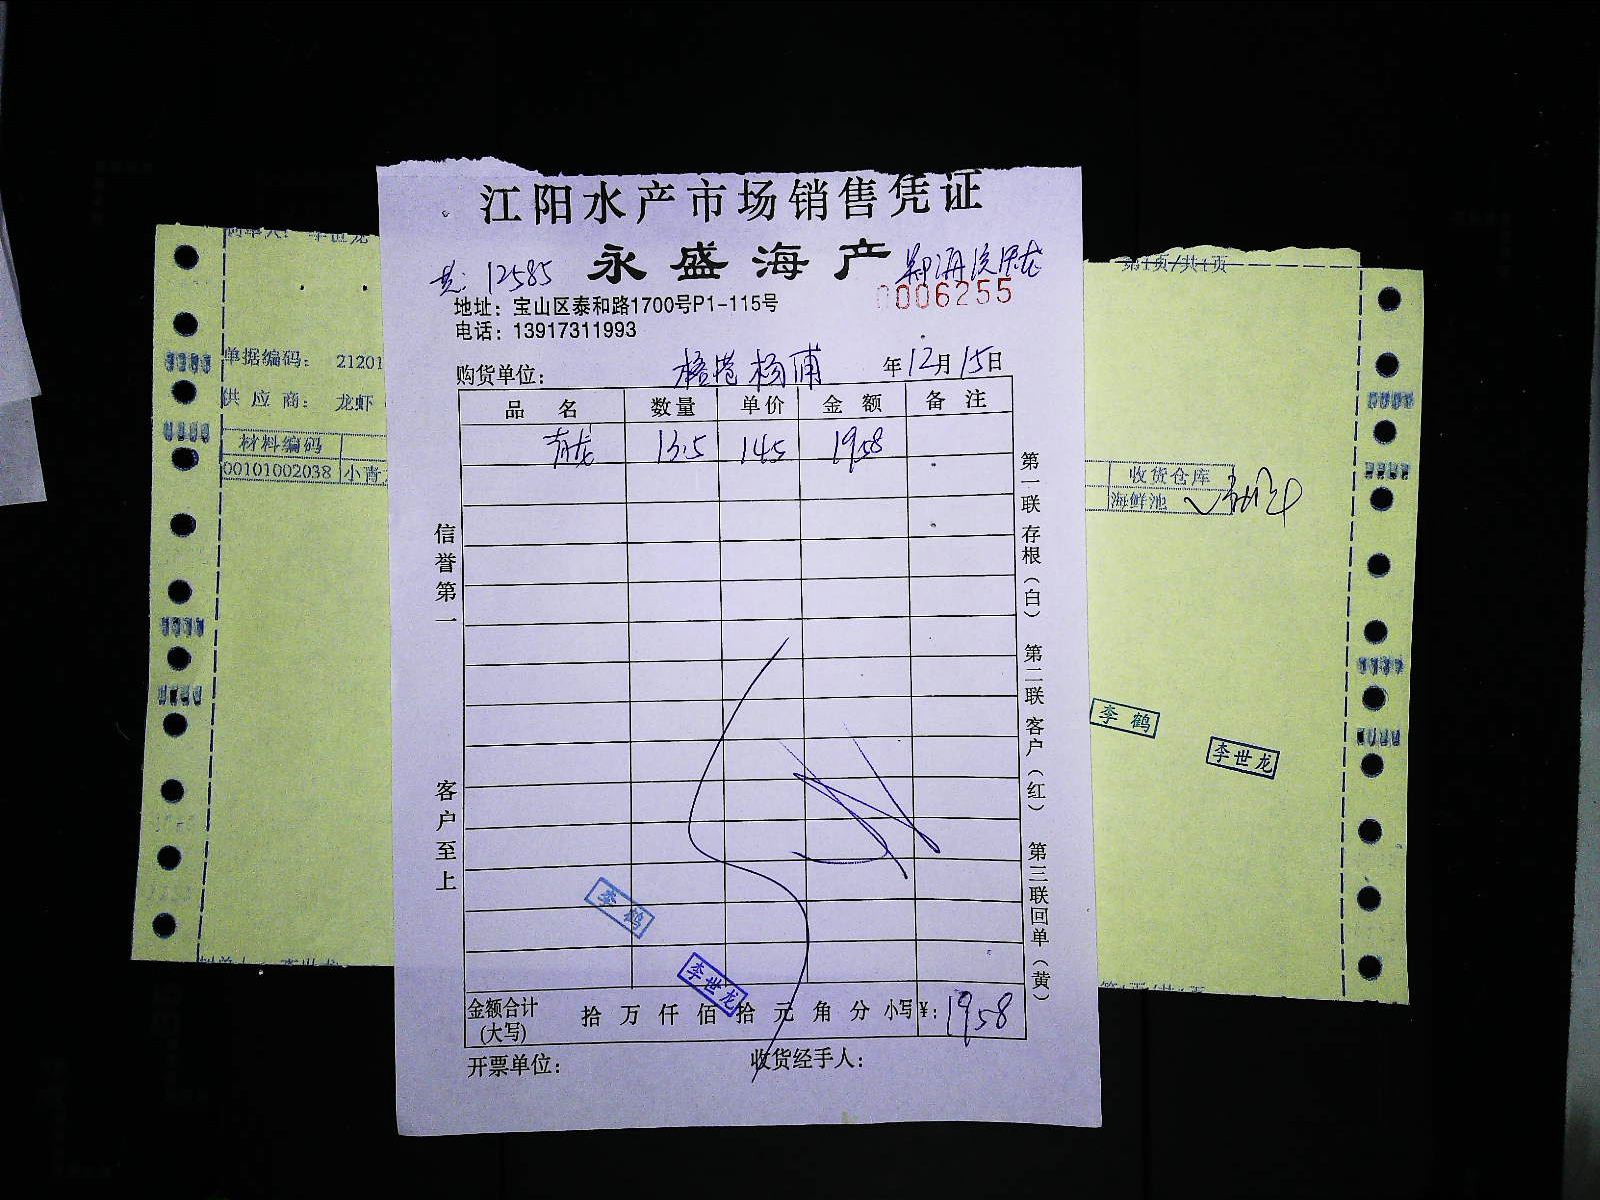 江阳水产市场销售凭证
永盛海产
12585
0006255
地址：宝山区泰和路1700号P1-115号
电话：13917311993
购货单位： 杨浦 年12月15日
品名 数量 单价 金额 备注
青龙 13.5 145 1958
信誉第一
客户至上
第一联存根（白） 第二联客户（红） 第三联回单（黄）
李鹤
李世龙
金额合计(大写) 拾万仟佰拾元角分 小写￥：1958
开票单位： 收货经手人：
制单人：李世龙
单据编码： 21201
供应商： 龙虾
材料编码
00101002038 小青
制单人：李世龙
第1页/共1页
收货仓库
海鲜池
李鹤
李世龙
第1页/共1页